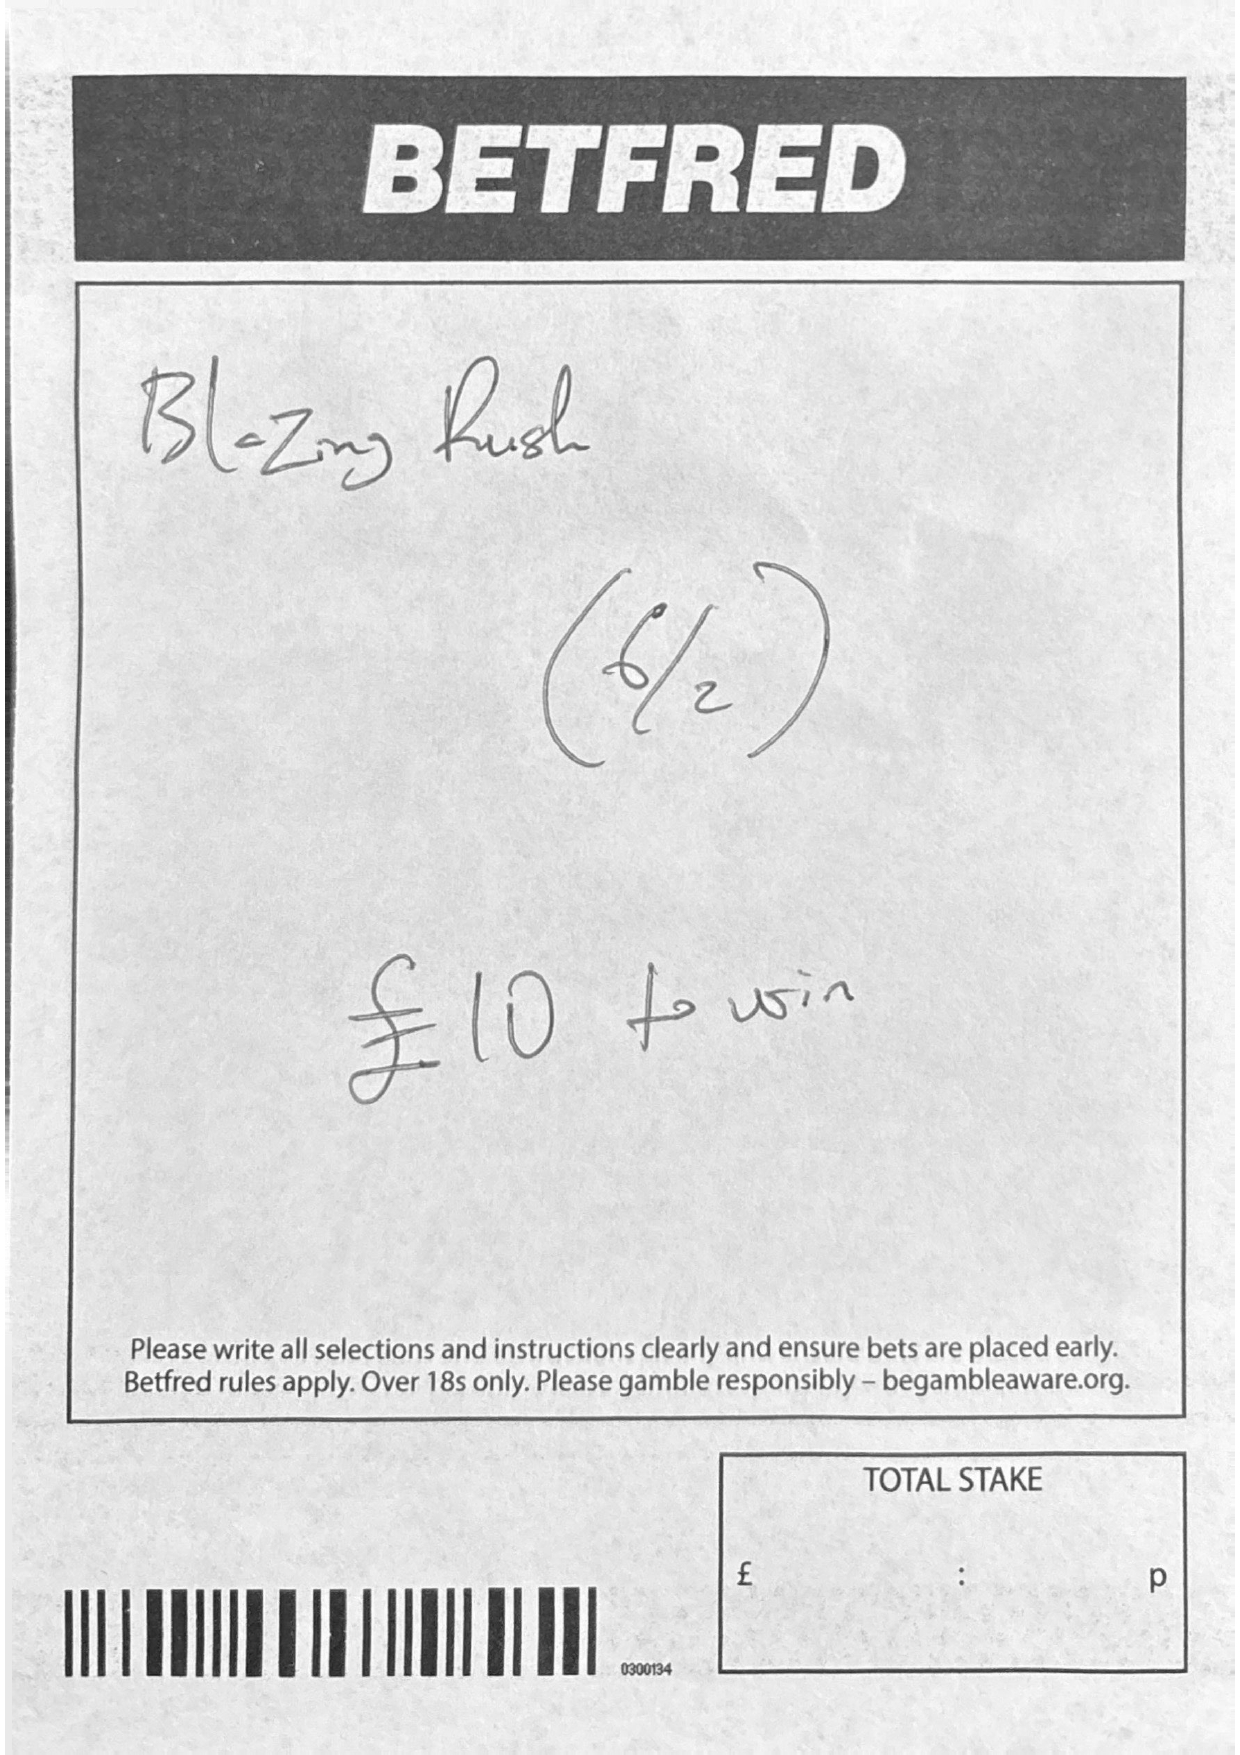 BETFRED
Blazing Rush
(6/2)
£10 to win
Please write all selections and instructions clearly and ensure bets are placed early.
Betfred rules apply. Over 18s only. Please gamble responsibly – begambleaware.org.
TOTAL STAKE
£ : p
0300134